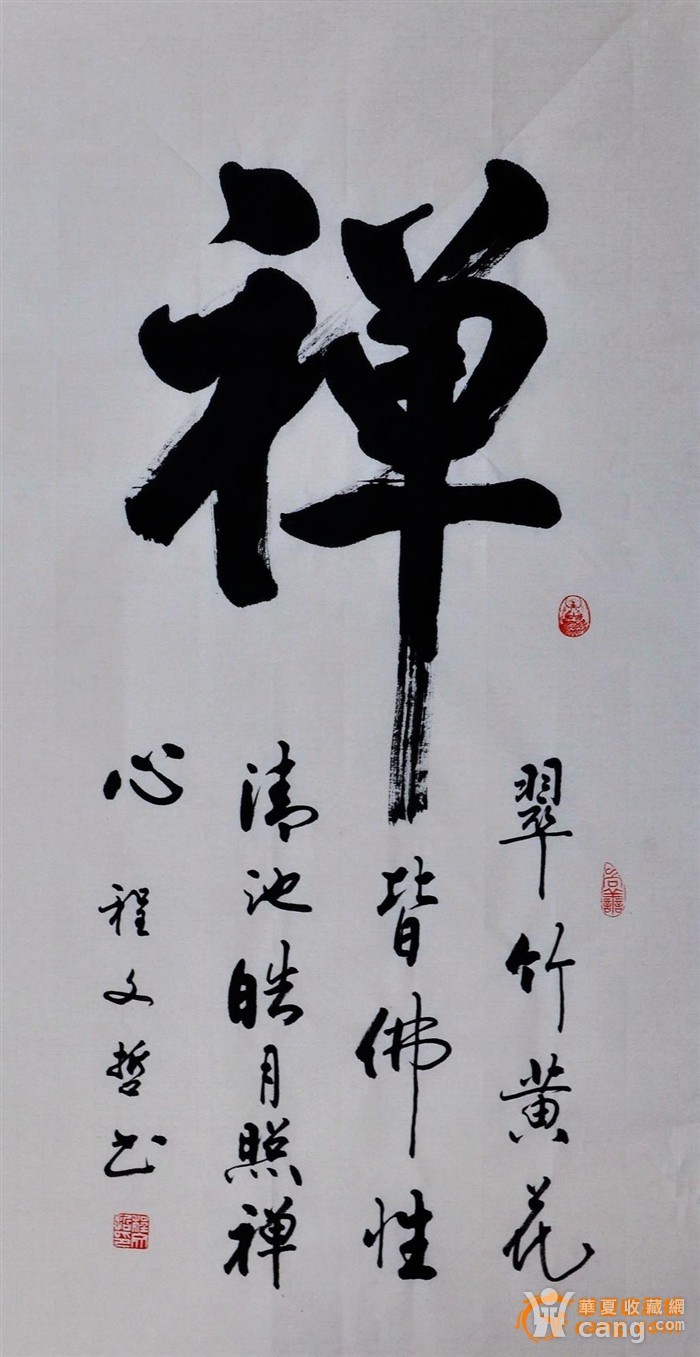 禅
翠竹黄花
皆佛性
清池皓月照禅
心 程文哲书
華夏收藏網
cang.com